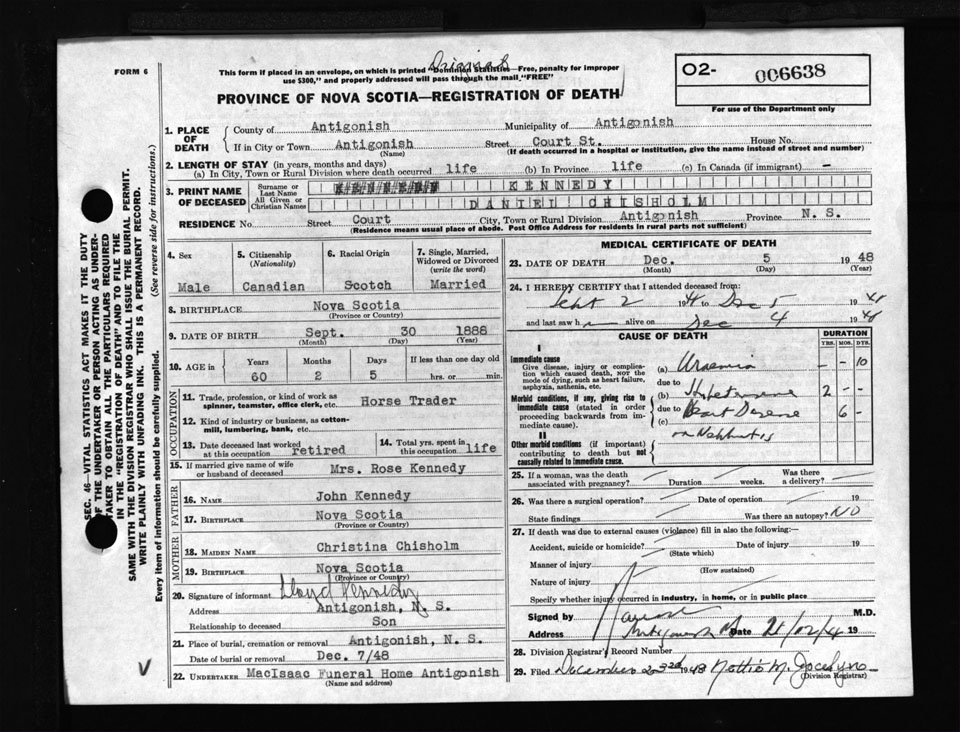 FORM 6
This form if placed in an envelope, on which is printed "Dominion Statistics—Free, penalty for improper
use $300," and properly addressed will pass through the mail "FREE"
O2- 006638
For use of the Department only
PROVINCE OF NOVA SCOTIA—REGISTRATION OF DEATH
1. PLACE OF DEATH
County of Antigonish Municipality of Antigonish
If in City or Town Antigonish Street Court St. House No.
(Name) (If death occurred in a hospital or institution, give the name instead of street and number)
2. LENGTH OF STAY (in years, months and days)
(a) In City, Town or Rural Division where death occurred life (b) In Province life (c) In Canada (if immigrant) -
3. PRINT NAME OF DECEASED
Surname or Last Name KENNEDY
All Given or Christian Names DANIEL CHISHOLM
RESIDENCE No. Street Court City, Town or Rural Division Antigonish Province N. S.
(Residence means usual place of abode. Post Office Address for residents in rural parts not sufficient)
4. Sex
Male
5. Citizenship (Nationality)
Canadian
6. Racial Origin
Scotch
7. Single, Married, Widowed or Divorced (write the word)
Married
8. BIRTHPLACE Nova Scotia
(Province or Country)
9. DATE OF BIRTH Sept. 30 1888
(Month) (Day) (Year)
10. AGE in Years Months Days If less than one day old
60 2 5 hrs. or min.
OCCUPATION
11. Trade, profession, or kind of work as spinner, teamster, office clerk, etc. Horse Trader
12. Kind of industry or business, as cotton-mill, lumbering, bank, etc.
13. Date deceased last worked at this occupation retired
14. Total yrs. spent in this occupation life
15. If married give name of wife or husband of deceased Mrs. Rose Kennedy
FATHER
16. Name John Kennedy
17. BIRTHPLACE Nova Scotia
(Province or Country)
MOTHER
18. MAIDEN NAME Christina Chisholm
19. BIRTHPLACE Nova Scotia
(Province or Country)
20. Signature of informant Lloyd Kennedy
Address Antigonish, N. S.
Relationship to deceased Son
21. Place of burial, cremation or removal Antigonish, N. S.
Date of burial or removal Dec. 7/48
22. UNDERTAKER MacIsaac Funeral Home Antigonish
(Name and address)
MEDICAL CERTIFICATE OF DEATH
23. DATE OF DEATH Dec. 5 1948
(Month) (Day) (Year)
24. I HEREBY CERTIFY that I attended deceased from:
Sept 2 19 to Dec 5 19
and last saw h alive on Dec 4 19
CAUSE OF DEATH
DURATION
YRS. MOS. DYS.
I
Immediate cause
Give disease, injury or complication which caused death, not the mode of dying, such as heart failure, asphyxia, asthenia, etc.
(a) Uraemia - - 10
due to
Morbid conditions, if any, giving rise to immediate cause (stated in order proceeding backwards from immediate cause).
(b) 2 - -
due to
(c) Heart Disease - 6 -
II
Other morbid conditions (if important) contributing to death but not causally related to immediate cause.
Nephritis
25. If a woman, was the death associated with pregnancy? Duration weeks. Was there a delivery?
26. Was there a surgical operation? Date of operation 19
State findings Was there an autopsy? NO
27. If death was due to external causes (violence) fill in also the following:—
Accident, suicide or homicide? Date of injury 19
(State which)
Manner of injury
(How sustained)
Nature of injury
Specify whether injury occurred in industry, in home, or in public place
Signed by M.D.
Address Antigonish Date 21/12/4 19
28. Division Registrar's Record Number
29. Filed December 23rd 1948 Nettie M. Jocelyn
(Division Registrar)
SEC. 46—VITAL STATISTICS ACT MAKES IT THE DUTY
OF THE UNDERTAKER OR PERSON ACTING AS UNDER-
TAKER TO OBTAIN ALL THE PARTICULARS REQUIRED
IN THE "REGISTRATION OF DEATH" AND TO FILE THE
SAME WITH THE DIVISION REGISTRAR WHO SHALL ISSUE THE BURIAL PERMIT.
WRITE PLAINLY WITH UNFADING INK. THIS IS A PERMANENT RECORD.
Every item of information should be carefully supplied. (See reverse side for instructions.)